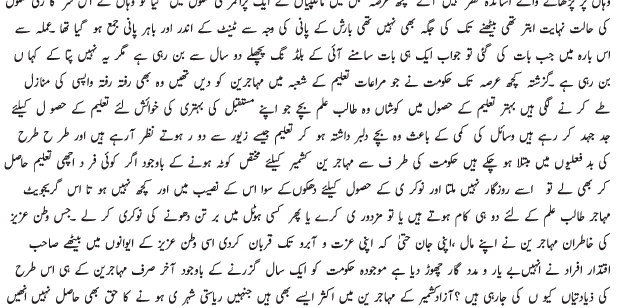 کی حالت نہایت ابتر تھی بیٹھنے تک کی جگہ بھی نہیں تھی بارش کے پانی کی وجہ سے ٹینٹ کے اندر اور باہر پانی جمع ہو گیا تھا۔عملہ سے
اس بارہ میں جب بات کی گئی تو جواب ایک ہی بات سامنے آئی کے بلڈ نگ پچھلے دو سال سے بن رہی ہے مگر یہ نہیں پتا کے کہا ں
بن رہی ہے ۔گزشتہ کچھ عرصہ تک حکومت نے جو مراعات تعلیم کے شعبہ میں مہاجرین کو دیں تھیں وہ بھی رفتہ رفتہ واپسی کی منازل
طے کر نے لگی ہیں بہتر تعلیم کے حصول میں کوشاں وہ طالب علم بچے جو اپنے مستقبل کی بہتری کی خوائش لئے تعلیم کے حصو ل کیلئے
جد جہد کر رہے ہیں وسائل کی کمی کے باعث وہ بچے دلبر داشتہ ہو کر تعلیم جیسے زیور سے دو ر ہوتے نظر آرہے ہیں اور طر ح طرح
کی بد فعلیوں میں مبتلا ہو چکے ہیں حکومت کی طر ف سے مہاجر ین کشمیر کیلئے مختص کوٹہ ہونے کے باوجود اگر کوئی فر د اچھی تعلیم حاصل
کر بھی لے تو اسے روزگار نہیں ملتا اور نوکر ی کے حصول کیلئے دھکوں کے سوا اس کے نصیب میں اور کچھ نہیں ہو تا اس گریجویٹ
مہاجر طالب علم کے لئے دو ہی کام ہوتے ہیں یا تو مزدور ی کرے یا پھر کسی ہوٹل میں بر تن دھونے کی نوکری کر لے ۔جس وطن عزیز
کی خاطران مہاجر ین نے اپنے مال ،اپنی جان حتیٰ کہ اپنی عزت و آبرو تک قربان کردی اسی وطن عزیز کے ایوانوں میں بیٹھے صاحب
اقتدار افراد نے انھیں بے یار و مدد گار چھوڑ دیا ہے موجودہ حکومت کو ایک سال گزرنے کے باوجود آخر صرف مہاجرین کے ہی اس طرح
کی ذیادتیاں کیو ں کی جارہی ہیں ؟آزادکشمیر کے مہاجر ین میں اکثر ایسے بھی ہیں جنہیں ریاستی شہر ی ہو نے کا حق بھی حاصل نہیں انھیں